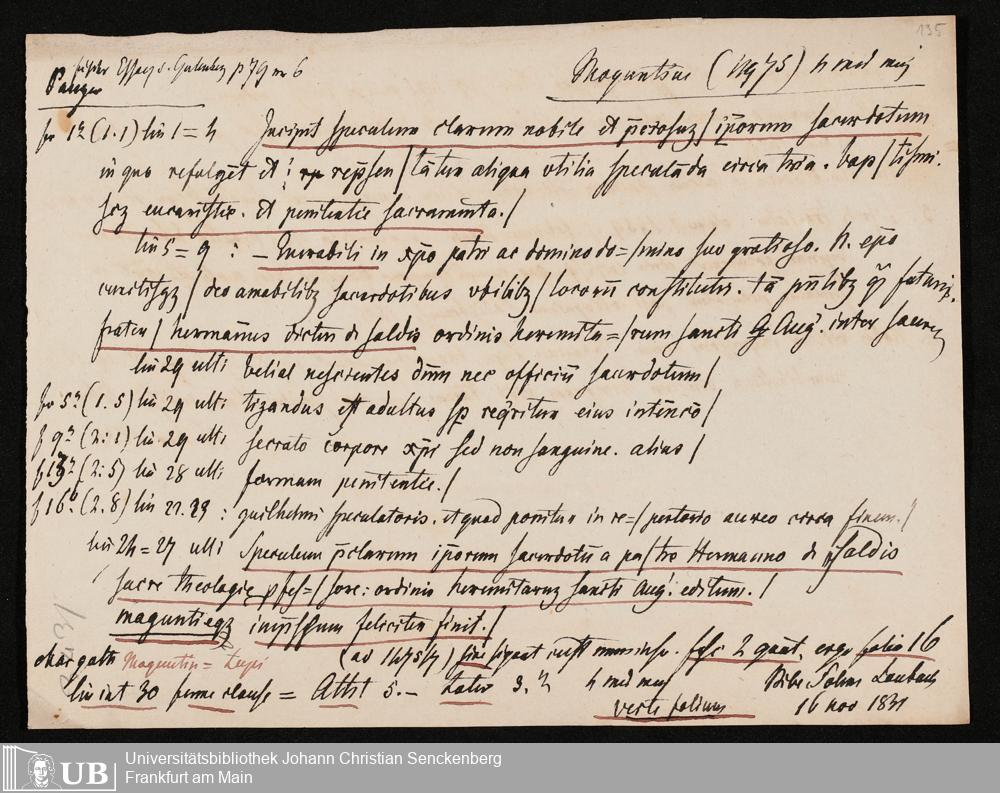 135
fischer Essay s. Gutenberg p 79 nr 6
Panzer
Moguntiae (1475) 4 med min
fo 1a (1.1) lin 1=4 Incipit speculum clarum nobile et p̄ciosuz / ip̄orum sacerdotum
in quo refulgēt et : rep̄sen / tātur aliqua vtilia speculāda circa tria. bap / tismi.
scz eucaristie. et penitentie sacramenta. /
lin 5=9 : – Enerabili in xp̄o patri ac domino do= / mino suo gratioso. N. ep̄o
cunctisqz / deo amabilibz sacerdotibus vbilibz / locorū constitutis. tā
frater / hermañus dictus de saldis ordinis heremita= / rum sancti Aug. inter
lin 29 ulti belial nescientes dūm nec officiū sacerdotum /
fo 5a (1.5) lin 29 ulti tizandus est adultus sp reqritur eius intēncō /
f 9a (2:1) lin 29 ulti secrato corpore xp̄i sed non sanguine. alias /
f 13a (2:5) lin 28 ulti formam penitentie. /
f 16b (2.8) lin 22.23 : guilhelmi speculatoris. et quod ponitur in re= / pertorio aureo circa finem. //
lin 24=27 ulti Speculum p̄clarum ip̄orum sacerdotū a pa / tre Hermanno de saldis
sacre theologie pfes= / sore: ordinis heremitaruz sancti Aug. editum. /
maguntieqz imp̄ssum feliciter finit. /
(ad 1475/7) sine signat custt numinsq. fasc 2 quat. ergo folia 16
char goth Moguntin = Lupi
lin int 30 ferme clause = Altit 5. – Latit 3. ½ 4 med min Bibl Solms Laubach
verte folium 16 nov 1831
Universitätsbibliothek Johann Christian Senckenberg
Frankfurt am Main
UB